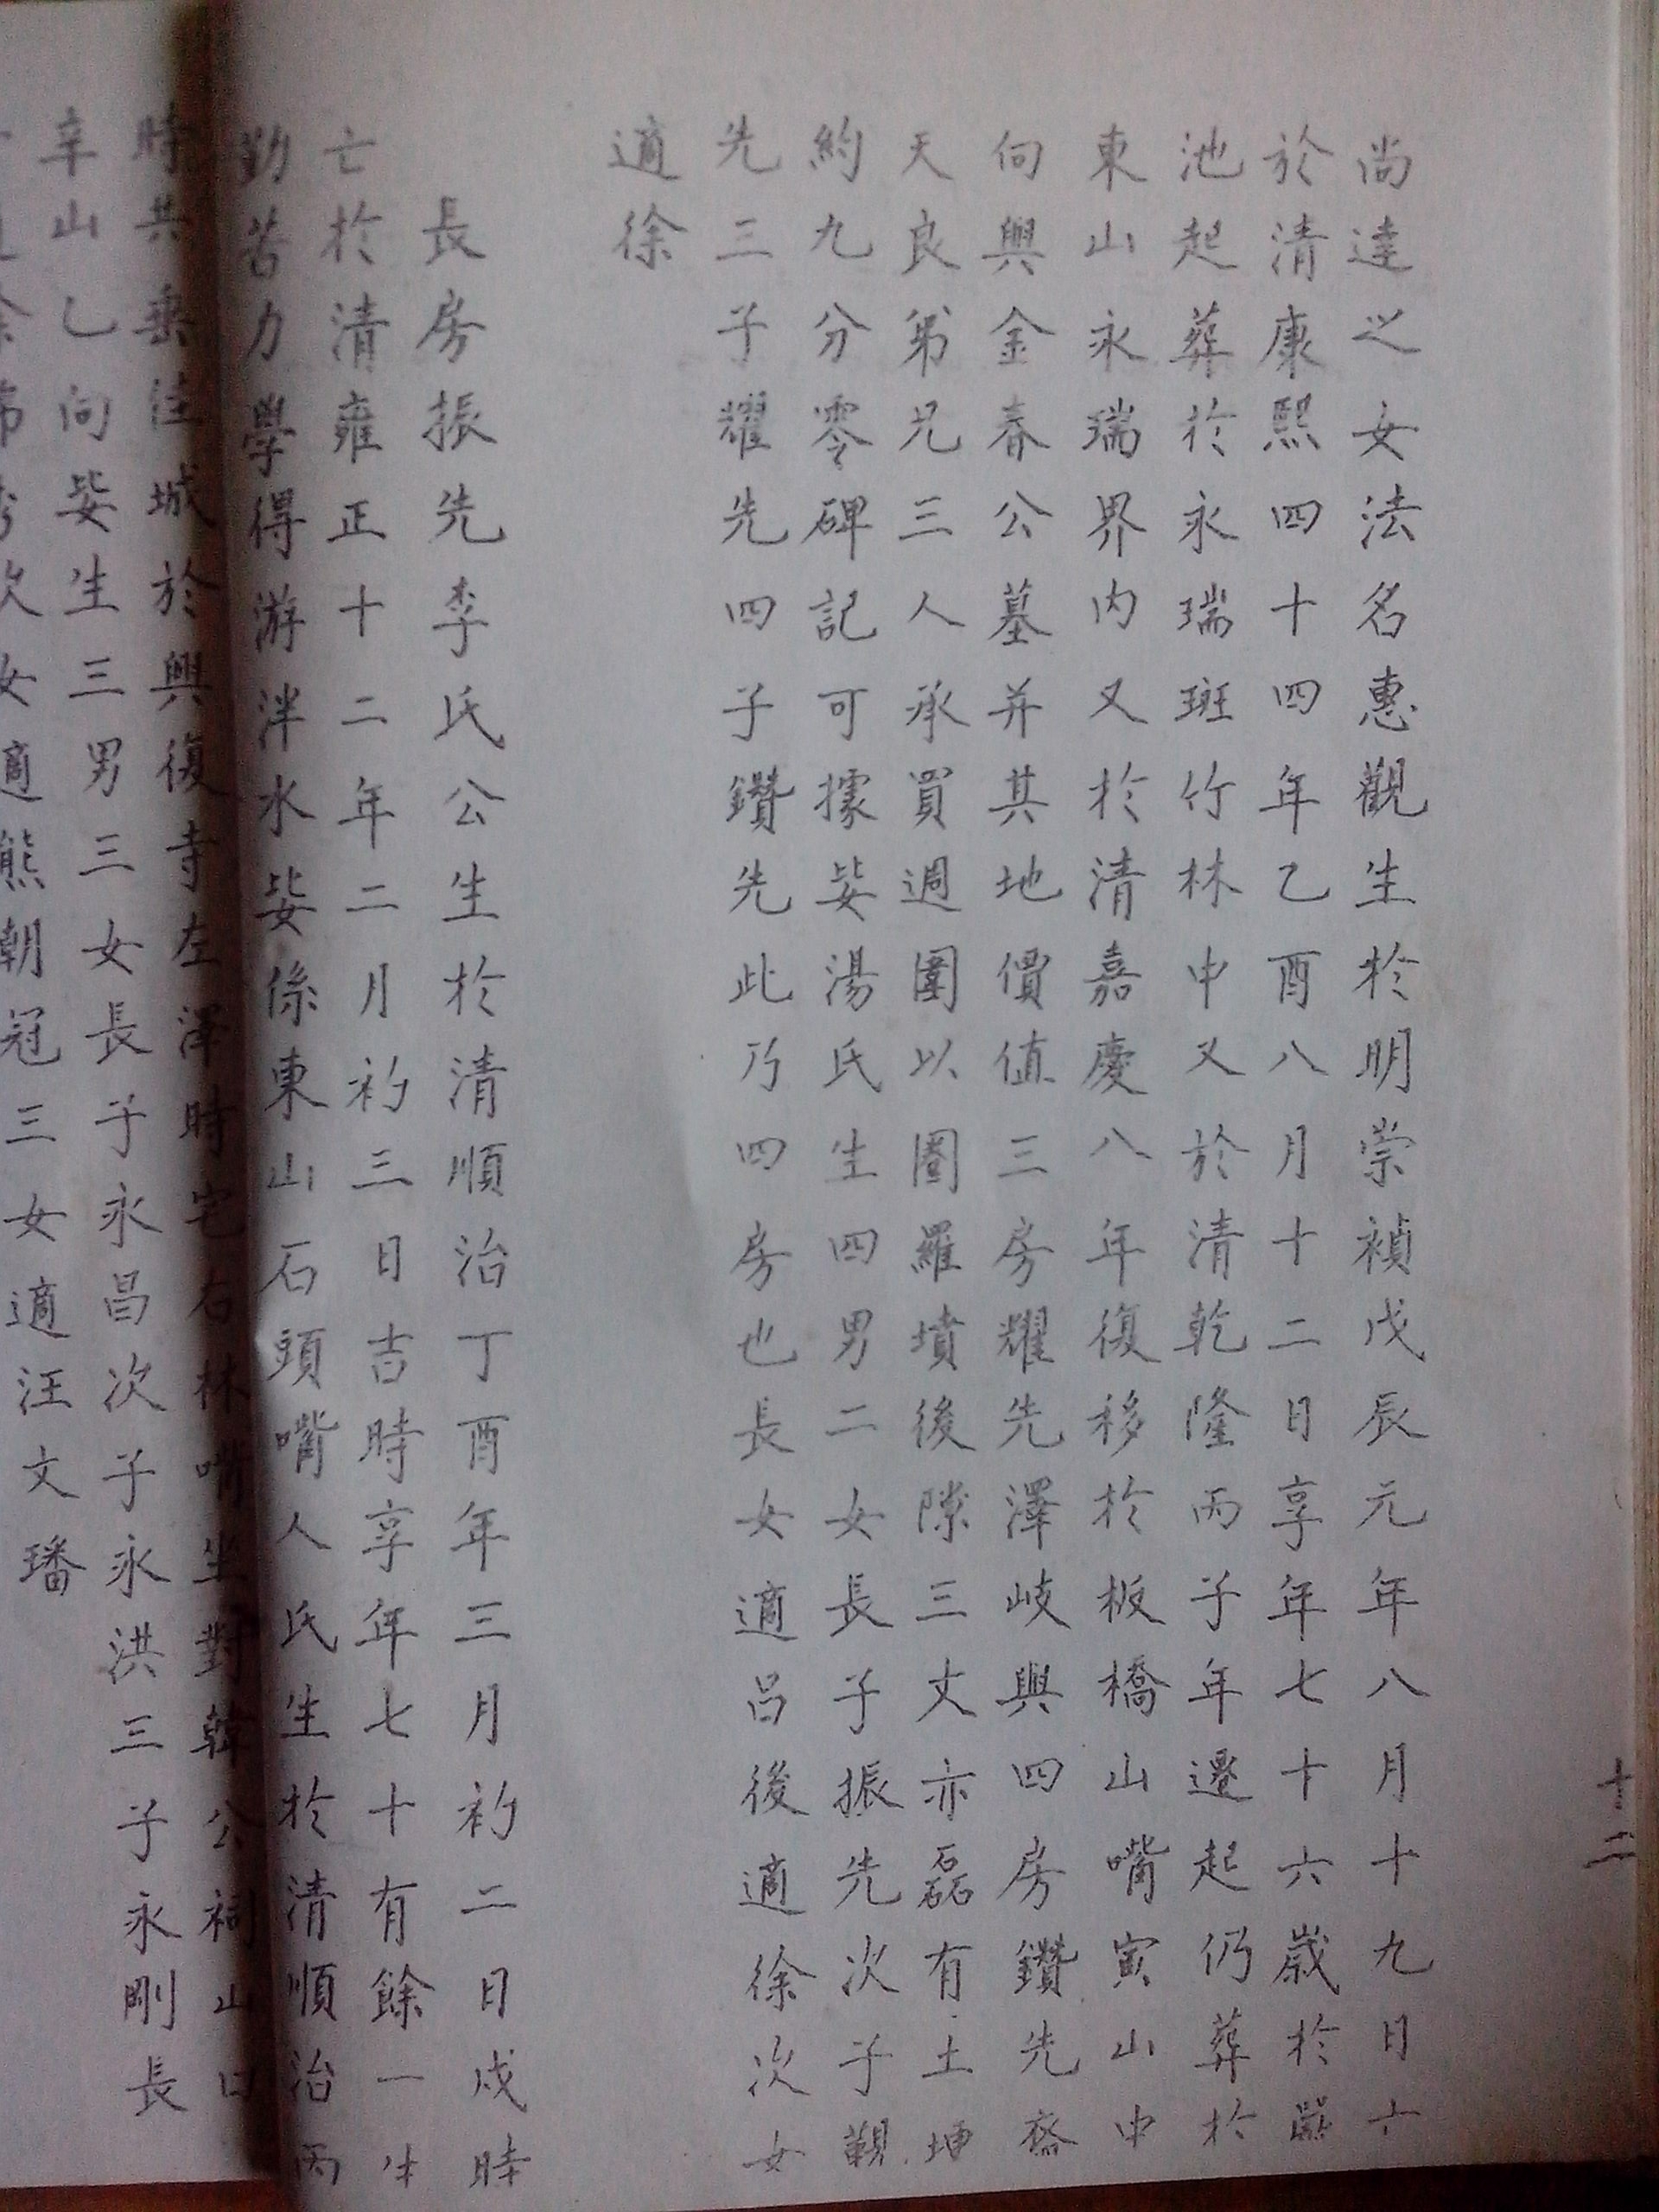 尚達之女法名惠觀生於明崇禎戊辰元年八月十九日亡
於清康熙四十四年乙酉八月十二日享年七十六歲於
池起葬於永瑞斑竹林中又於清乾隆丙子年遷起仍葬於
東山永瑞界内又於清嘉慶八年復移於板橋山嘴寅山申
向與金春公墓并其地價值三房耀先澤岐與四房鑽先裔
天良弟兄三人承買週圍以圈羅墳後隙三丈亦磊有土埂
約九分零碑記可據妣湯氏生四男二女長子振先次子觀
先三子耀先四子鑽先此乃四房也長女適呂後適徐次女
適徐
長房振先李氏公生於清順治丁酉年三月初二日戌時
亡於清雍正十二年二月初三日吉時享年七十有餘一生
勤苦力學得游泮水妣係東山石頭嘴人氏生於清順治丙
時共垂佳城於興復寺左澤時宅右林嘴坐對韓公祠山口
辛山乙向妣生三男三女長子永昌次子永洪三子永剛長
次女適熊朝冠三女適汪文璠
十二